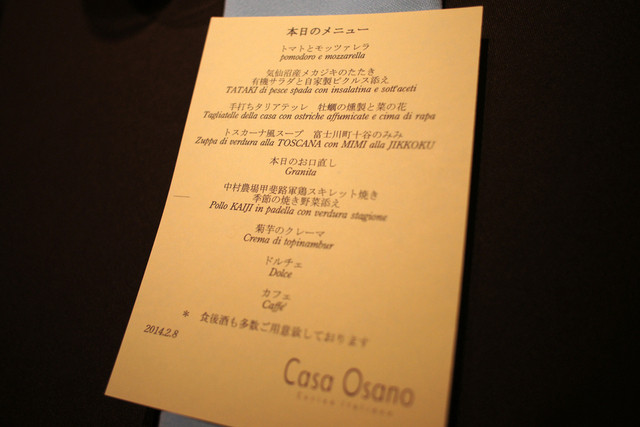 本日のメニュー
トマトとモッツァレラ
pomodoro e mozzarella
気仙沼産メカジキのたたき
有機サラダと自家製ピクルス添え
TATAKI di pesce spada con insalatina e sott'aceti
手打ちタリアテッレ 牡蠣の燻製と菜の花
Tagliatelle della casa con ostriche affumicate e cima di rapa
トスカーナ風スープ 富士川町十谷のみみ
Zuppa di verdura alla TOSCANA con MIMI alla JIKKOKU
本日のお口直し
Granita
中村農場甲斐路軍鶏スキレット焼き
季節の焼き野菜添え
Pollo KAIJI in padella con verdura stagione
菊芋のクレーマ
Crema di topinambur
ドルチェ
Dolce
カフェ
Caffé
* 食後酒も多数ご用意致しております
2014.2.8
Casa Osano
Cucina Italiana